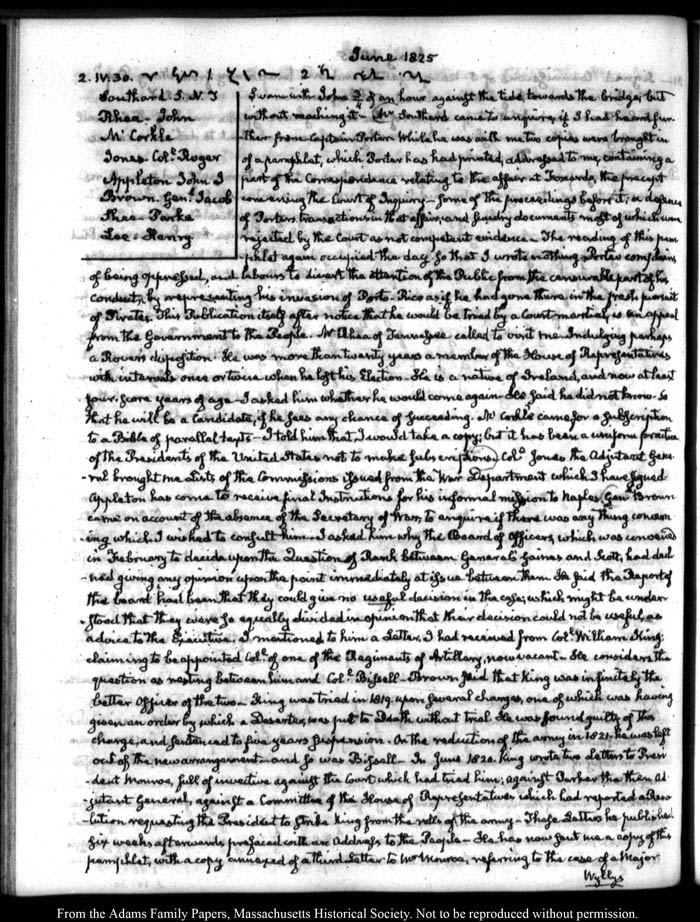 June 1825
2. IV.30.
Southard S. N. D
Rhea - John
Mc Corkle
Jones Colo. Roger
Appleton John J
Brown. Genl. Jacob
Rhea - Parke
Lee - Henry
Swam with John 3/4 of an hour against the tide towards the bridge, but
without reaching it - Mr Southard came to enquire, if I had heard fur-
ther from Captain Porter. While he was with me two copies were brought in
of a pamphlet, which Porter has had printed, addressed to me, containing a
part of the Correspondence relating to the affair at Foxardo, the precept
convening the Court of Inquiry - some of the proceedings before it, a defence
of Porters transactions in that affair, and sundry documents most of which were
rejected by the Court as not competent evidence. - The reading of this pam-
-phlet again occupied the day so that I wrote nothing. Porter complains
of being oppressed, and labours to divert the attention of the Public from the censurable part of his
conduct, by representing his invasion of Porto-Rico as if he had gone there in the fresh pursuit
of Pirates. This Publication itself after notice that he would be tried by a Court-martial, is an appeal
from the Government to the People. Mr Rhea of Tennessee called to visit me. Indulging perhaps
a Rover's disposition. He was more than twenty years a member of the House of Representatives
with intervals once or twice when he lost his Election. He is a native of Ireland, and now at least
four-score years of age - I asked him whether he would come again - He said he did not know. So
that he will be a Candidate, if he sees any chance of succeeding. Mc Corkle came for a subscription
to a Bible of parallel texts - I told him that I would take a copy; but it has been a uniform practice
of the Presidents of the United States not to make subscriptions. Colo. Jones the Adjutant Gene-
-ral brought me Lists of the Commissions issued from the War Department which I have signed
Appleton has come to receive final Instructions for his informal mission to Naples. Genl Brown
came on account of the absence of the Secretary of War, to enquire if there was any thing concern-
-ing which I wished to consult him - I asked him why the Board of officers, which was convened
in February to decide upon the Question of Rank between Generals Gaines and Scott, had decli-
-ned giving any opinion upon the point immediately at issue between them. He said the Report of
the board had been that they could give no useful decision in the case; which might be under-
-stood that they were so equally divided in opinion that their decision could not be useful, as
advice to the Executive. I mentioned to him a Letter, I had received from Colo. William King,
claiming to be appointed Colo. of one of the Regiments of Artillery, now vacant - He considers the
question as resting between him and Colo. Bissell - Brown said that King was infinitely the
better Officer of the two - King was tried in 1819. upon several charges, one of which was having
given an order by which a Deserter, was put to Death without trial. He was found guilty of this
charge, and sentenced to five years suspension. On the reduction of the army in 1821. he was left
out of the new arrangement - and so was Bissell - In June 1820. King wrote two Letters to Presi-
-dent Monroe, full of invective against the Court which had tried him; against Parker the then Ad-
-jutant General, against a Committee of the House of Representatives which had reported a Reso-
-lution requesting the President to strike King from the rolls of the army - These Letters he published
six weeks afterwards prefaced with an Address to the People - He has now sent me a copy of this
pamphlet, with a copy annexed of a third Letter to Mr Monroe, referring to the case of a Major
Wyllys
From the Adams Family Papers, Massachusetts Historical Society. Not to be reproduced without permission.